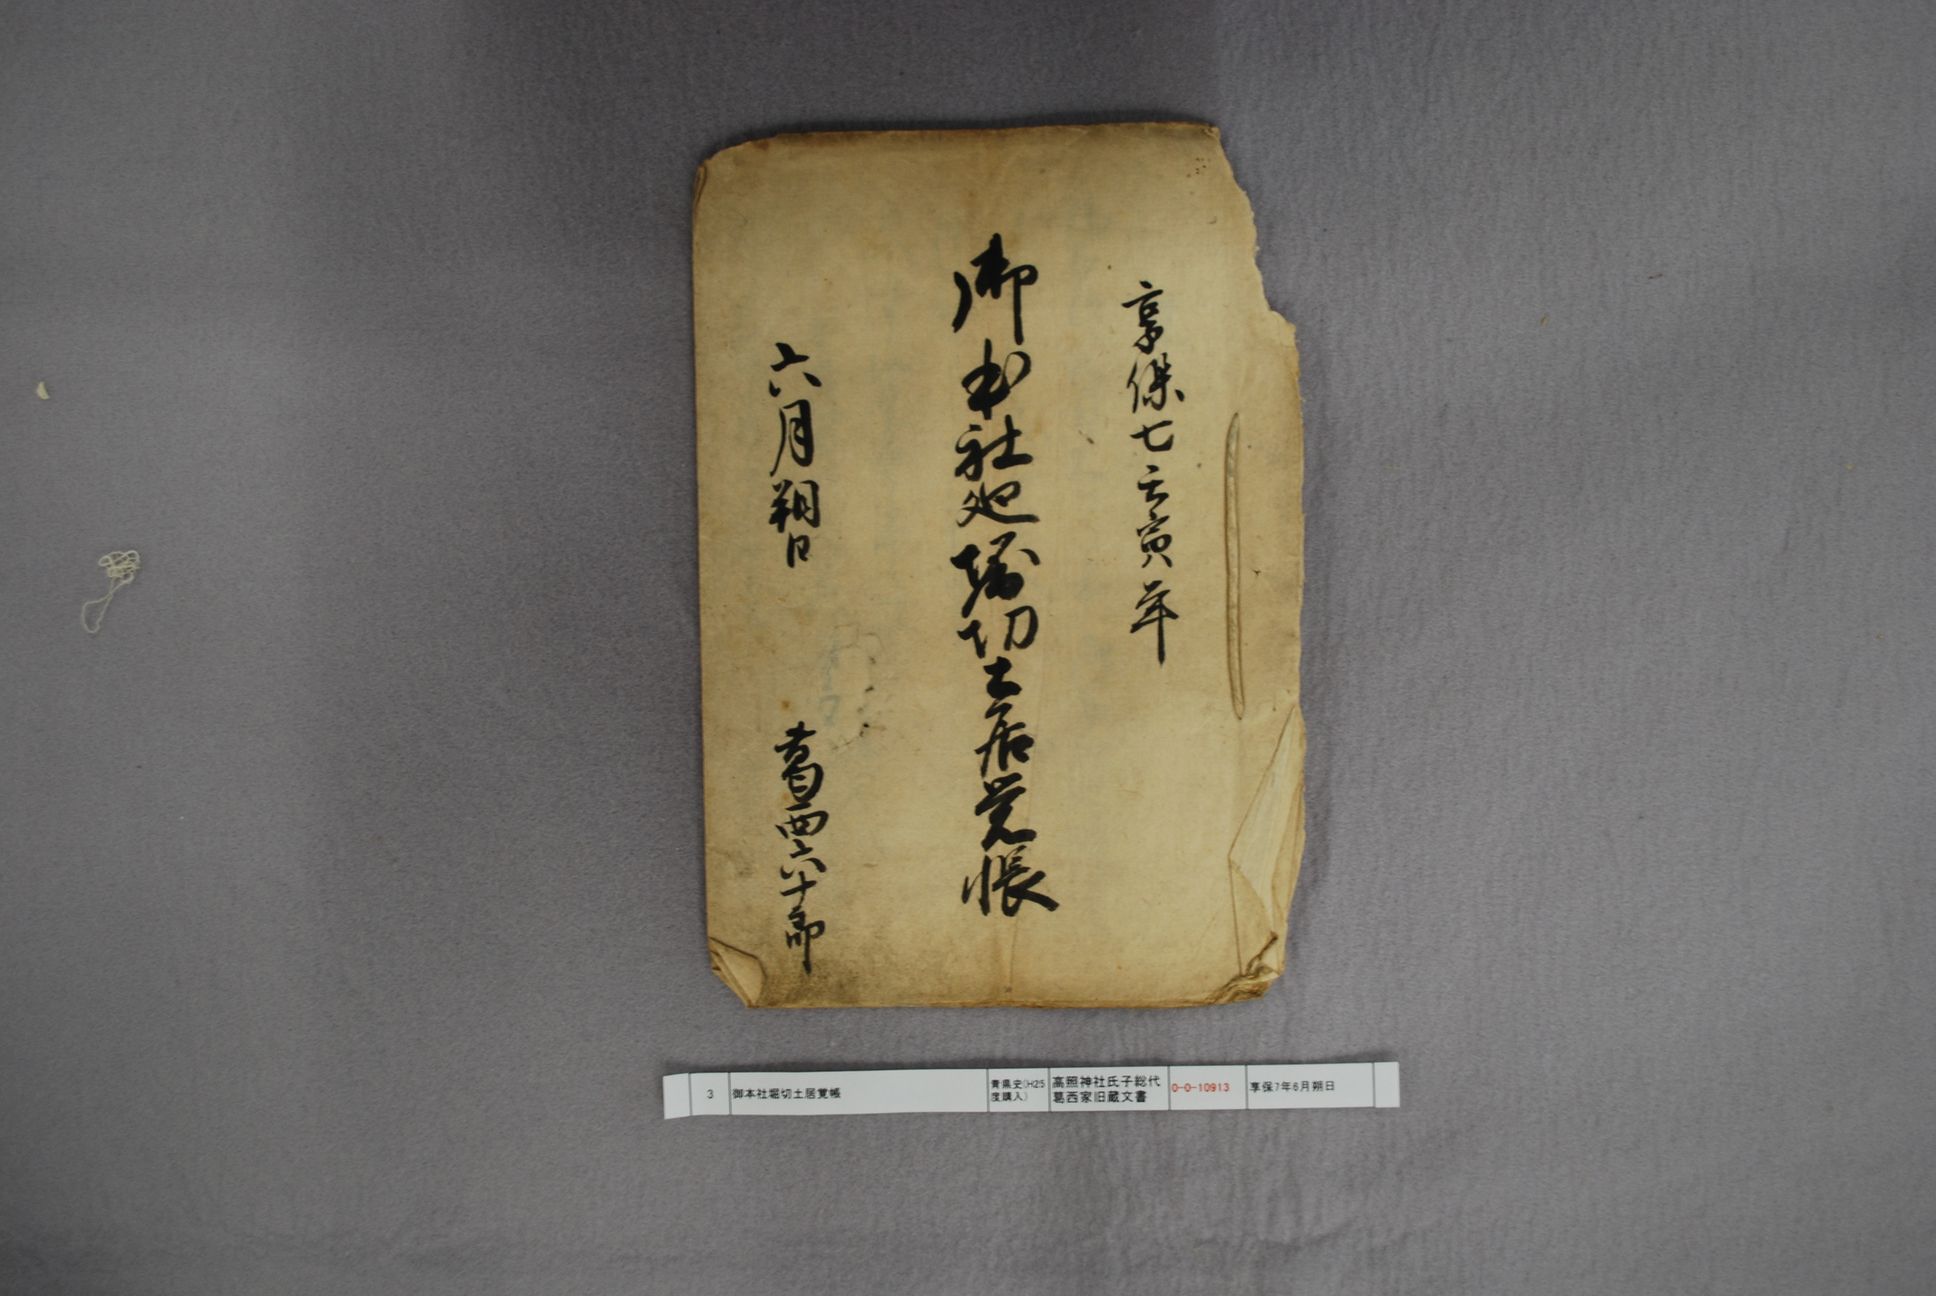 享保七壬寅年
御本社廻堀切土居覚帳
六月朔日
葛西六十郎
3
御本社堀切土居覚帳
青県史(H25
度購入)
高照神社氏子総代
葛西家旧蔵文書
0-0-10913
享保7年6月朔日